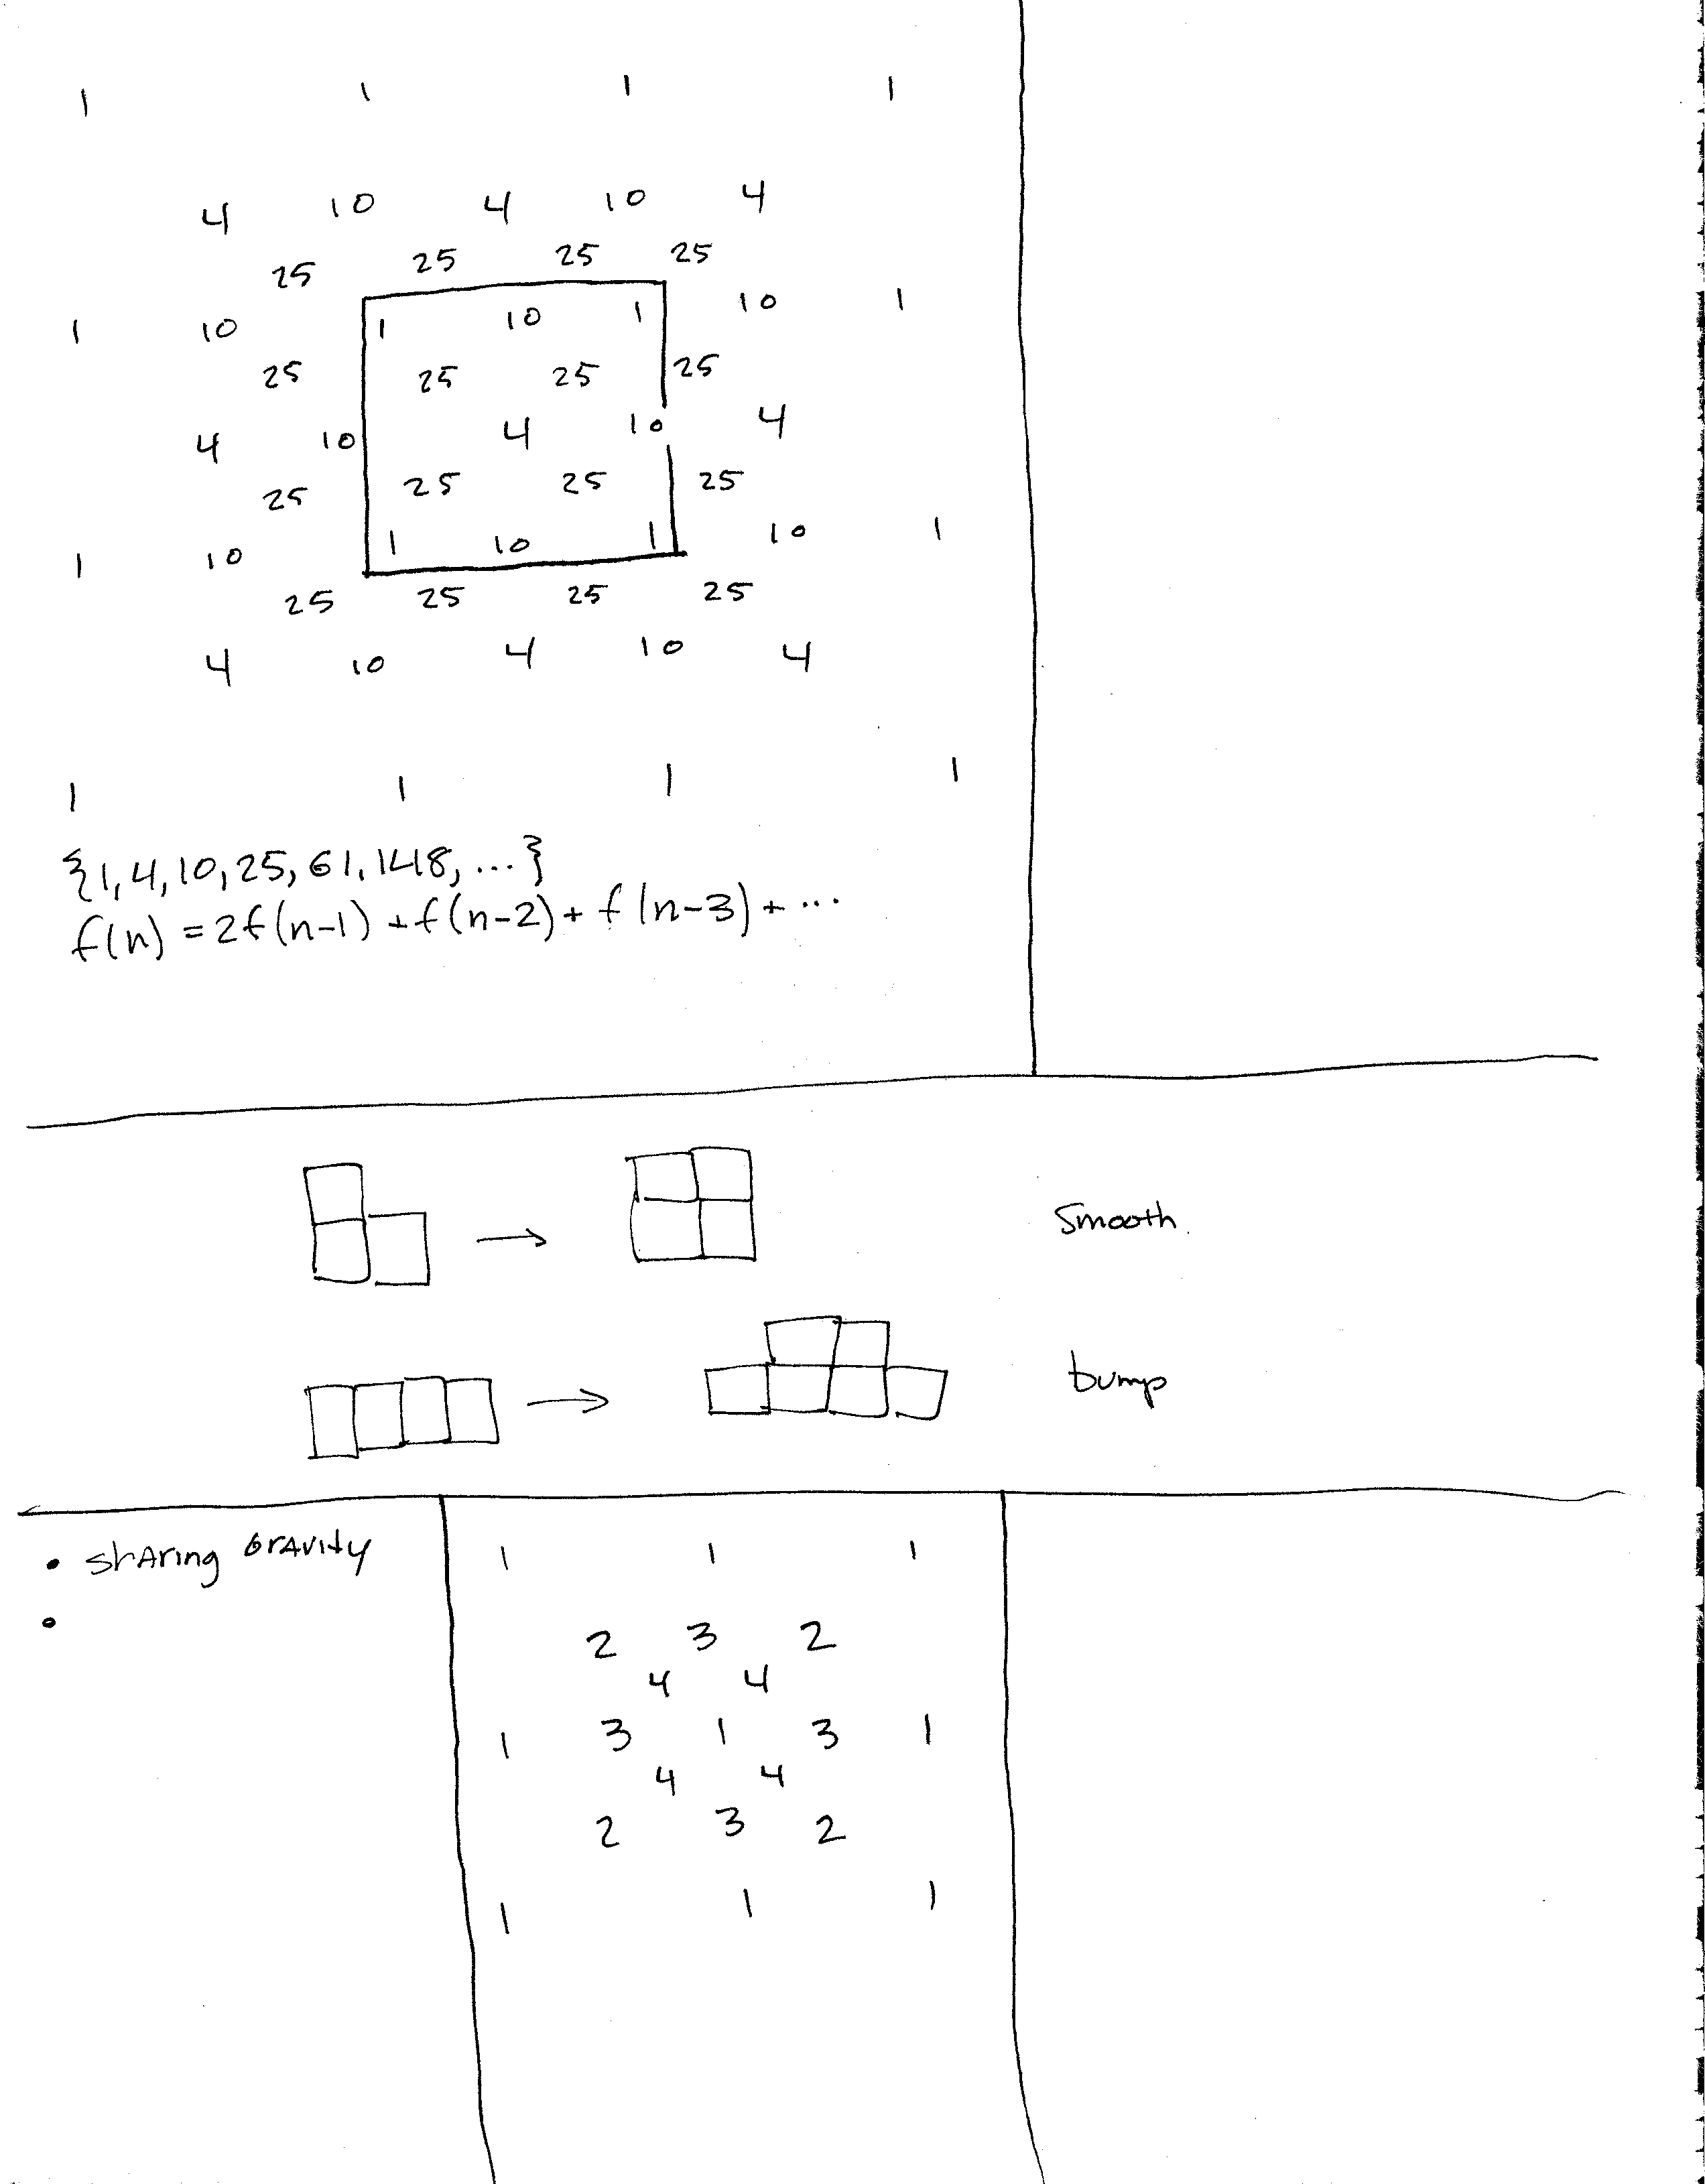 1 1 1 1
4 10 4 10 4
25 25 25 25
1 10 1 10 1 10 1
25 25 25 25
4 10 4 10 4
25 25 25 25
1 10 1 10 1 10 1
25 25 25 25
4 10 4 10 4
1 1 1 1
{1, 4, 10, 25, 61, 148, ... }
f(n) = 2f(n-1) + f(n-2) + f(n-3) + ...
Smooth
bump
• sharing Gravity
•
1 1 1
2 3 2
4 4
1 3 1 3 1
4 4
2 3 2
1 1 1